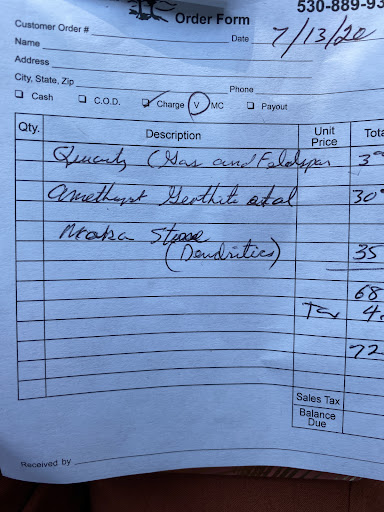 530-889-93
Order Form
Customer Order #
Date 7/13/20
Name
Address
City, State, Zip
Phone
Cash C.O.D. Charge V MC Payout
Qty. Description Unit Price Tota
Quartz (Has and Feldspar 3
Amethyst Geothite 30
Stone
(Dendrities) 35
68
Tx 4.
72
Sales Tax
Balance Due
Received by